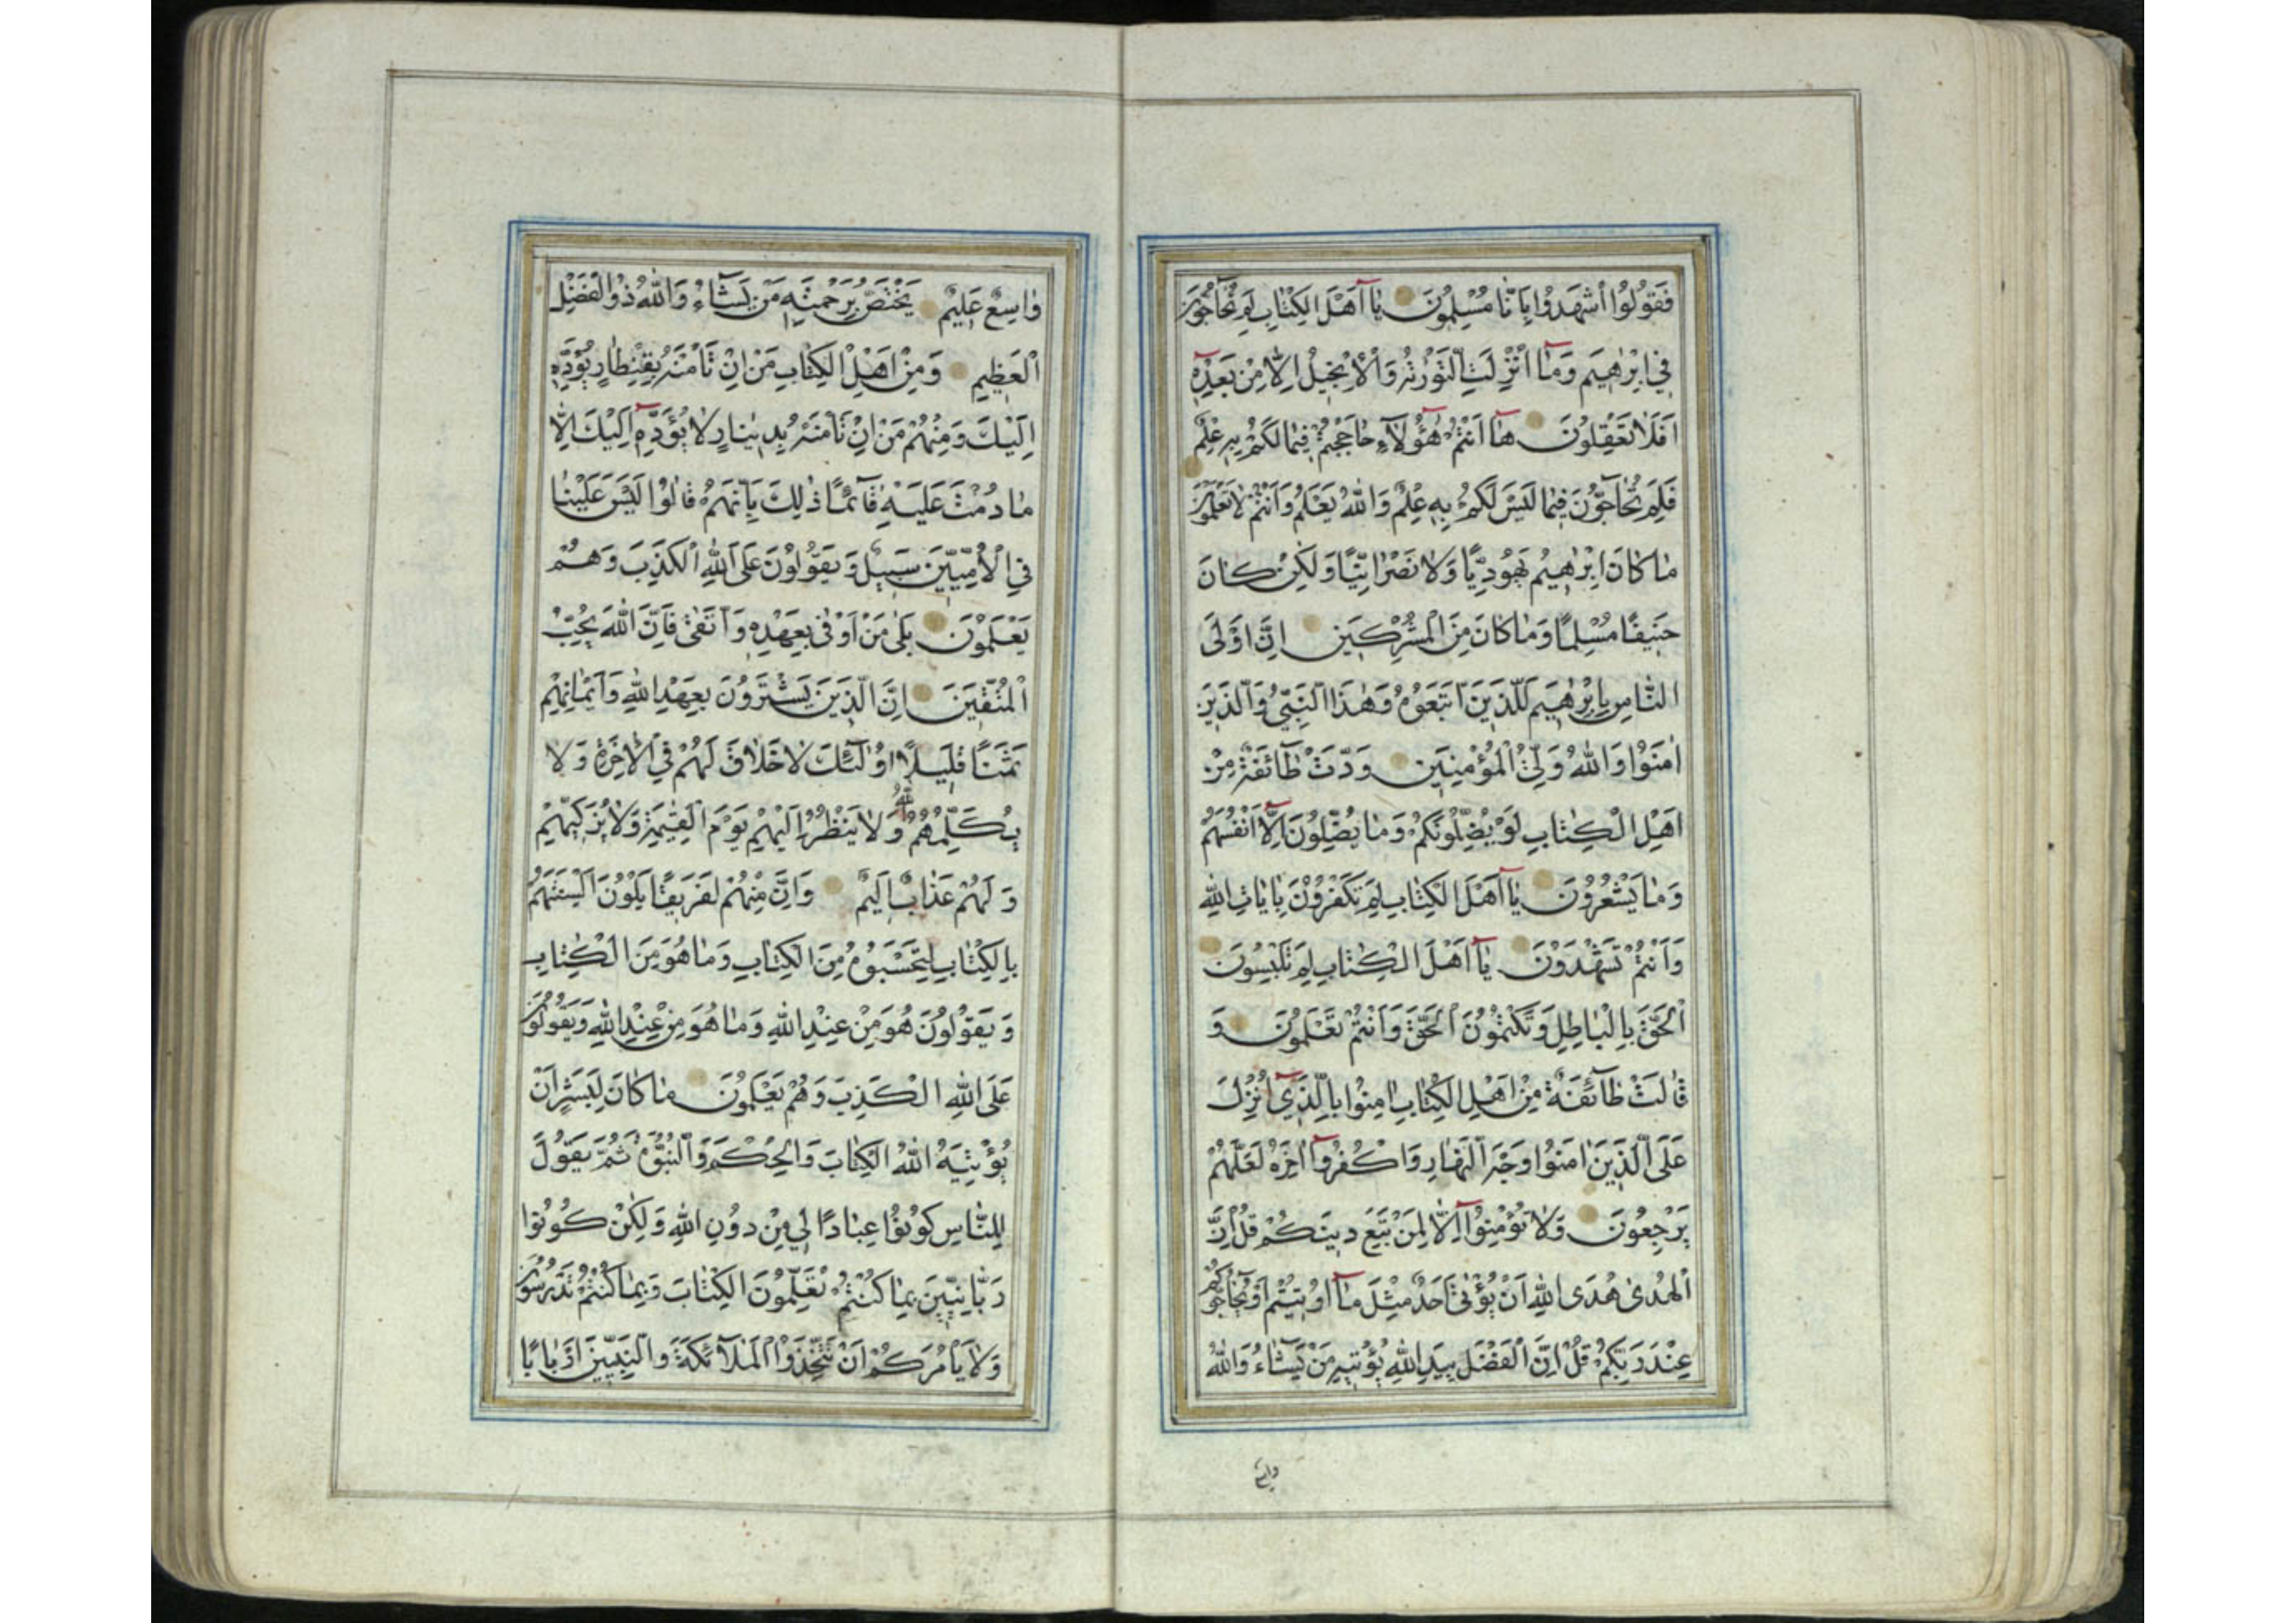 فَقُولُوا اشْهَدُوا بِاَنَّا مُسْلِمُونَ يَا اَهْلَ الْكِتَابِ لِمَ تُحَاجُّونَ
فِي اِبْرٰهِيمَ وَمَا اُنْزِلَتِ التَّوْرٰىةُ وَالْاِنْجِيلُ اِلَّا مِنْ بَعْدِهِ
اَفَلَا تَعْقِلُونَ هَا اَنْتُمْ هٰؤُلَاءِ حَاجَجْتُمْ فِيمَا لَكُمْ بِهِ عِلْمٌ
فَلِمَ تُحَاجُّونَ فِيمَا لَيْسَ لَكُمْ بِهِ عِلْمٌ وَاللّٰهُ يَعْلَمُ وَاَنْتُمْ لَا تَعْلَمُونَ
مَا كَانَ اِبْرٰهِيمُ يَهُودِيًّا وَلَا نَصْرَانِيًّا وَلٰكِنْ كَانَ
حَنِيفًا مُسْلِمًا وَمَا كَانَ مِنَ الْمُشْرِكِينَ اِنَّ اَوْلَى
النَّاسِ بِاِبْرٰهِيمَ لَلَّذِينَ اتَّبَعُوهُ وَهٰذَا النَّبِيُّ وَالَّذِينَ
اٰمَنُوا وَاللّٰهُ وَلِيُّ الْمُؤْمِنِينَ وَدَّتْ طَائِفَةٌ مِنْ
اَهْلِ الْكِتَابِ لَوْ يُضِلُّونَكُمْ وَمَا يُضِلُّونَ اِلَّا اَنْفُسَهُمْ
وَمَا يَشْعُرُونَ يَا اَهْلَ الْكِتَابِ لِمَ تَكْفُرُونَ بِاٰيَاتِ اللّٰهِ
وَاَنْتُمْ تَشْهَدُونَ يَا اَهْلَ الْكِتَابِ لِمَ تَلْبِسُونَ
الْحَقَّ بِالْبَاطِلِ وَتَكْتُمُونَ الْحَقَّ وَاَنْتُمْ تَعْلَمُونَ وَ
قَالَتْ طَائِفَةٌ مِنْ اَهْلِ الْكِتَابِ اٰمِنُوا بِالَّذِي اُنْزِلَ
عَلَى الَّذِينَ اٰمَنُوا وَجْهَ النَّهَارِ وَاكْفُرُوا اٰخِرَهُ لَعَلَّهُمْ
يَرْجِعُونَ وَلَا تُؤْمِنُوا اِلَّا لِمَنْ تَبِعَ دِينَكُمْ قُلْ اِنَّ
الْهُدٰى هُدَى اللّٰهِ اَنْ يُؤْتٰى اَحَدٌ مِثْلَ مَا اُوتِيتُمْ اَوْ يُحَاجُّوكُمْ
عِنْدَ رَبِّكُمْ قُلْ اِنَّ الْفَضْلَ بِيَدِ اللّٰهِ يُؤْتِيهِ مَنْ يَشَاءُ وَاللّٰهُ
واسع
وَاسِعٌ عَلِيمٌ يَخْتَصُّ بِرَحْمَتِهِ مَنْ يَشَاءُ وَاللّٰهُ ذُو الْفَضْلِ
الْعَظِيمِ وَمِنْ اَهْلِ الْكِتَابِ مَنْ اِنْ تَأْمَنْهُ بِقِنْطَارٍ يُؤَدِّهِ
اِلَيْكَ وَمِنْهُمْ مَنْ اِنْ تَأْمَنْهُ بِدِينَارٍ لَا يُؤَدِّهِ اِلَيْكَ اِلَّا
مَا دُمْتَ عَلَيْهِ قَائِمًا ذٰلِكَ بِاَنَّهُمْ قَالُوا لَيْسَ عَلَيْنَا
فِي الْاُمِّيِّينَ سَبِيلٌ وَيَقُولُونَ عَلَى اللّٰهِ الْكَذِبَ وَهُمْ
يَعْلَمُونَ بَلٰى مَنْ اَوْفٰى بِعَهْدِهِ وَاتَّقٰى فَاِنَّ اللّٰهَ يُحِبُّ
الْمُتَّقِينَ اِنَّ الَّذِينَ يَشْتَرُونَ بِعَهْدِ اللّٰهِ وَاَيْمَانِهِمْ
ثَمَنًا قَلِيلًا اُولٰئِكَ لَا خَلَاقَ لَهُمْ فِي الْاٰخِرَةِ وَلَا
يُكَلِّمُهُمُ اللّٰهُ وَلَا يَنْظُرُ اِلَيْهِمْ يَوْمَ الْقِيٰمَةِ وَلَا يُزَكِّيهِمْ
وَلَهُمْ عَذَابٌ اَلِيمٌ وَاِنَّ مِنْهُمْ لَفَرِيقًا يَلْوُونَ اَلْسِنَتَهُمْ
بِالْكِتَابِ لِتَحْسَبُوهُ مِنَ الْكِتَابِ وَمَا هُوَ مِنَ الْكِتَابِ
وَيَقُولُونَ هُوَ مِنْ عِنْدِ اللّٰهِ وَمَا هُوَ مِنْ عِنْدِ اللّٰهِ وَيَقُولُونَ
عَلَى اللّٰهِ الْكَذِبَ وَهُمْ يَعْلَمُونَ مَا كَانَ لِبَشَرٍ اَنْ
يُؤْتِيَهُ اللّٰهُ الْكِتَابَ وَالْحُكْمَ وَالنُّبُوَّةَ ثُمَّ يَقُولَ
لِلنَّاسِ كُونُوا عِبَادًا لِي مِنْ دُونِ اللّٰهِ وَلٰكِنْ كُونُوا
رَبَّانِيِّينَ بِمَا كُنْتُمْ تُعَلِّمُونَ الْكِتَابَ وَبِمَا كُنْتُمْ تَدْرُسُونَ
وَلَا يَأْمُرَكُمْ اَنْ تَتَّخِذُوا الْمَلَائِكَةَ وَالنَّبِيِّينَ اَرْبَابًا